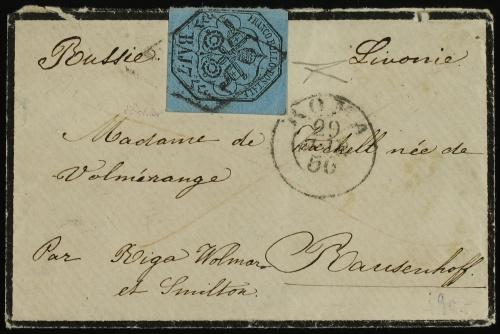 Russie
FRANCO BOLLO POSTALE
BAJ. 7
Livonie
ROMA
29
56
Madame de
née de
Volmérange
Par Riga Wolmar
et Smilton
Rausenhoff.